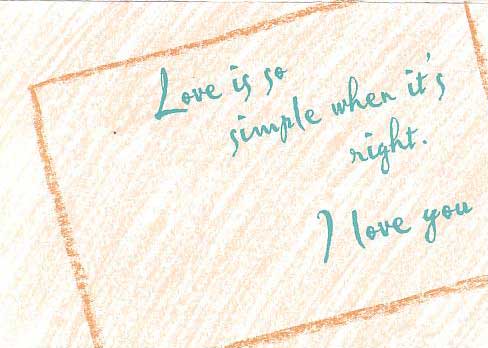 Love is so
simple when it's
right.
I love you